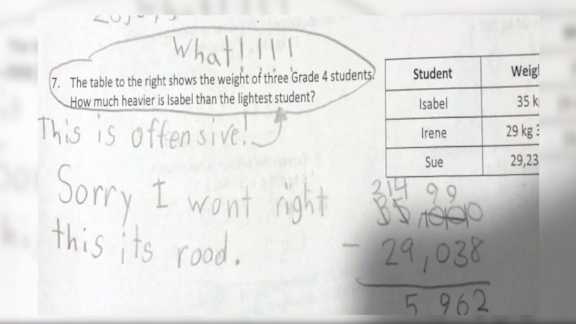 What!!!!!
7. The table to the right shows the weight of three Grade 4 students.
How much heavier is Isabel than the lightest student?
This is offensive!
Sorry I wont right
this its rood.
Student Weig
Isabel 35 k
Irene 29 kg
Sue 29,23
2 14 9 9
35
- 29,038
5 962